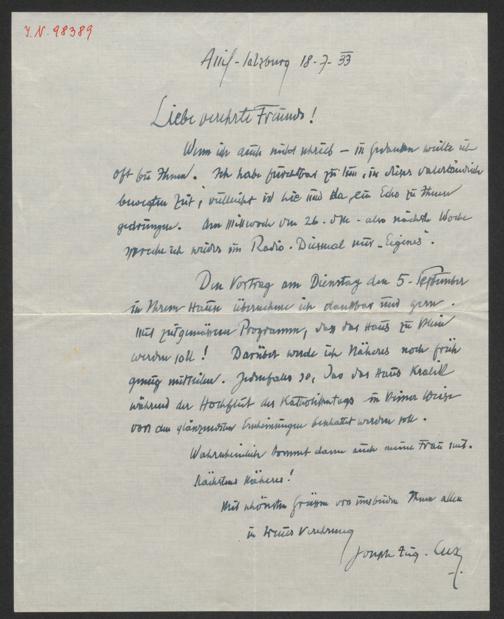 J.N. 98389
Anif-Salzburg 18-7-33
Liebe verehrte Freunde!
Wenn ich auch nicht schrieb – in Gedanken weilte ich
oft bei Ihnen. Ich habe furchtbar zu tun, in dieser
bewegten Zeit; vielleicht ist hie und da ein Echo zu Ihnen
gedrungen. Am Mittwoch den 26. - also nächste Woche
spreche ich wieder im Radio. Diesmal nur „Eigenes".
Den Vortrag am Dienstag den 5. September
in Ihrem Hause übernehme ich dankbar und gern.
Mit zeitgemässem Programm, dass das Haus zu klein
werden soll! Darüber werde ich Näheres noch früh
genug mitteilen. Jedenfalls so, das das Haus Kralik
während der Hochflut des Katholikentags in Wiener Weise
von den glänzendsten Erscheinungen werden soll.
Wahrscheinlich kommt dann auch meine Frau mit.
Nächstens Näheres!
Mit schönsten Grüssen von uns beiden Ihnen allen
in treuer Verehrung
Joseph Aug. Lux